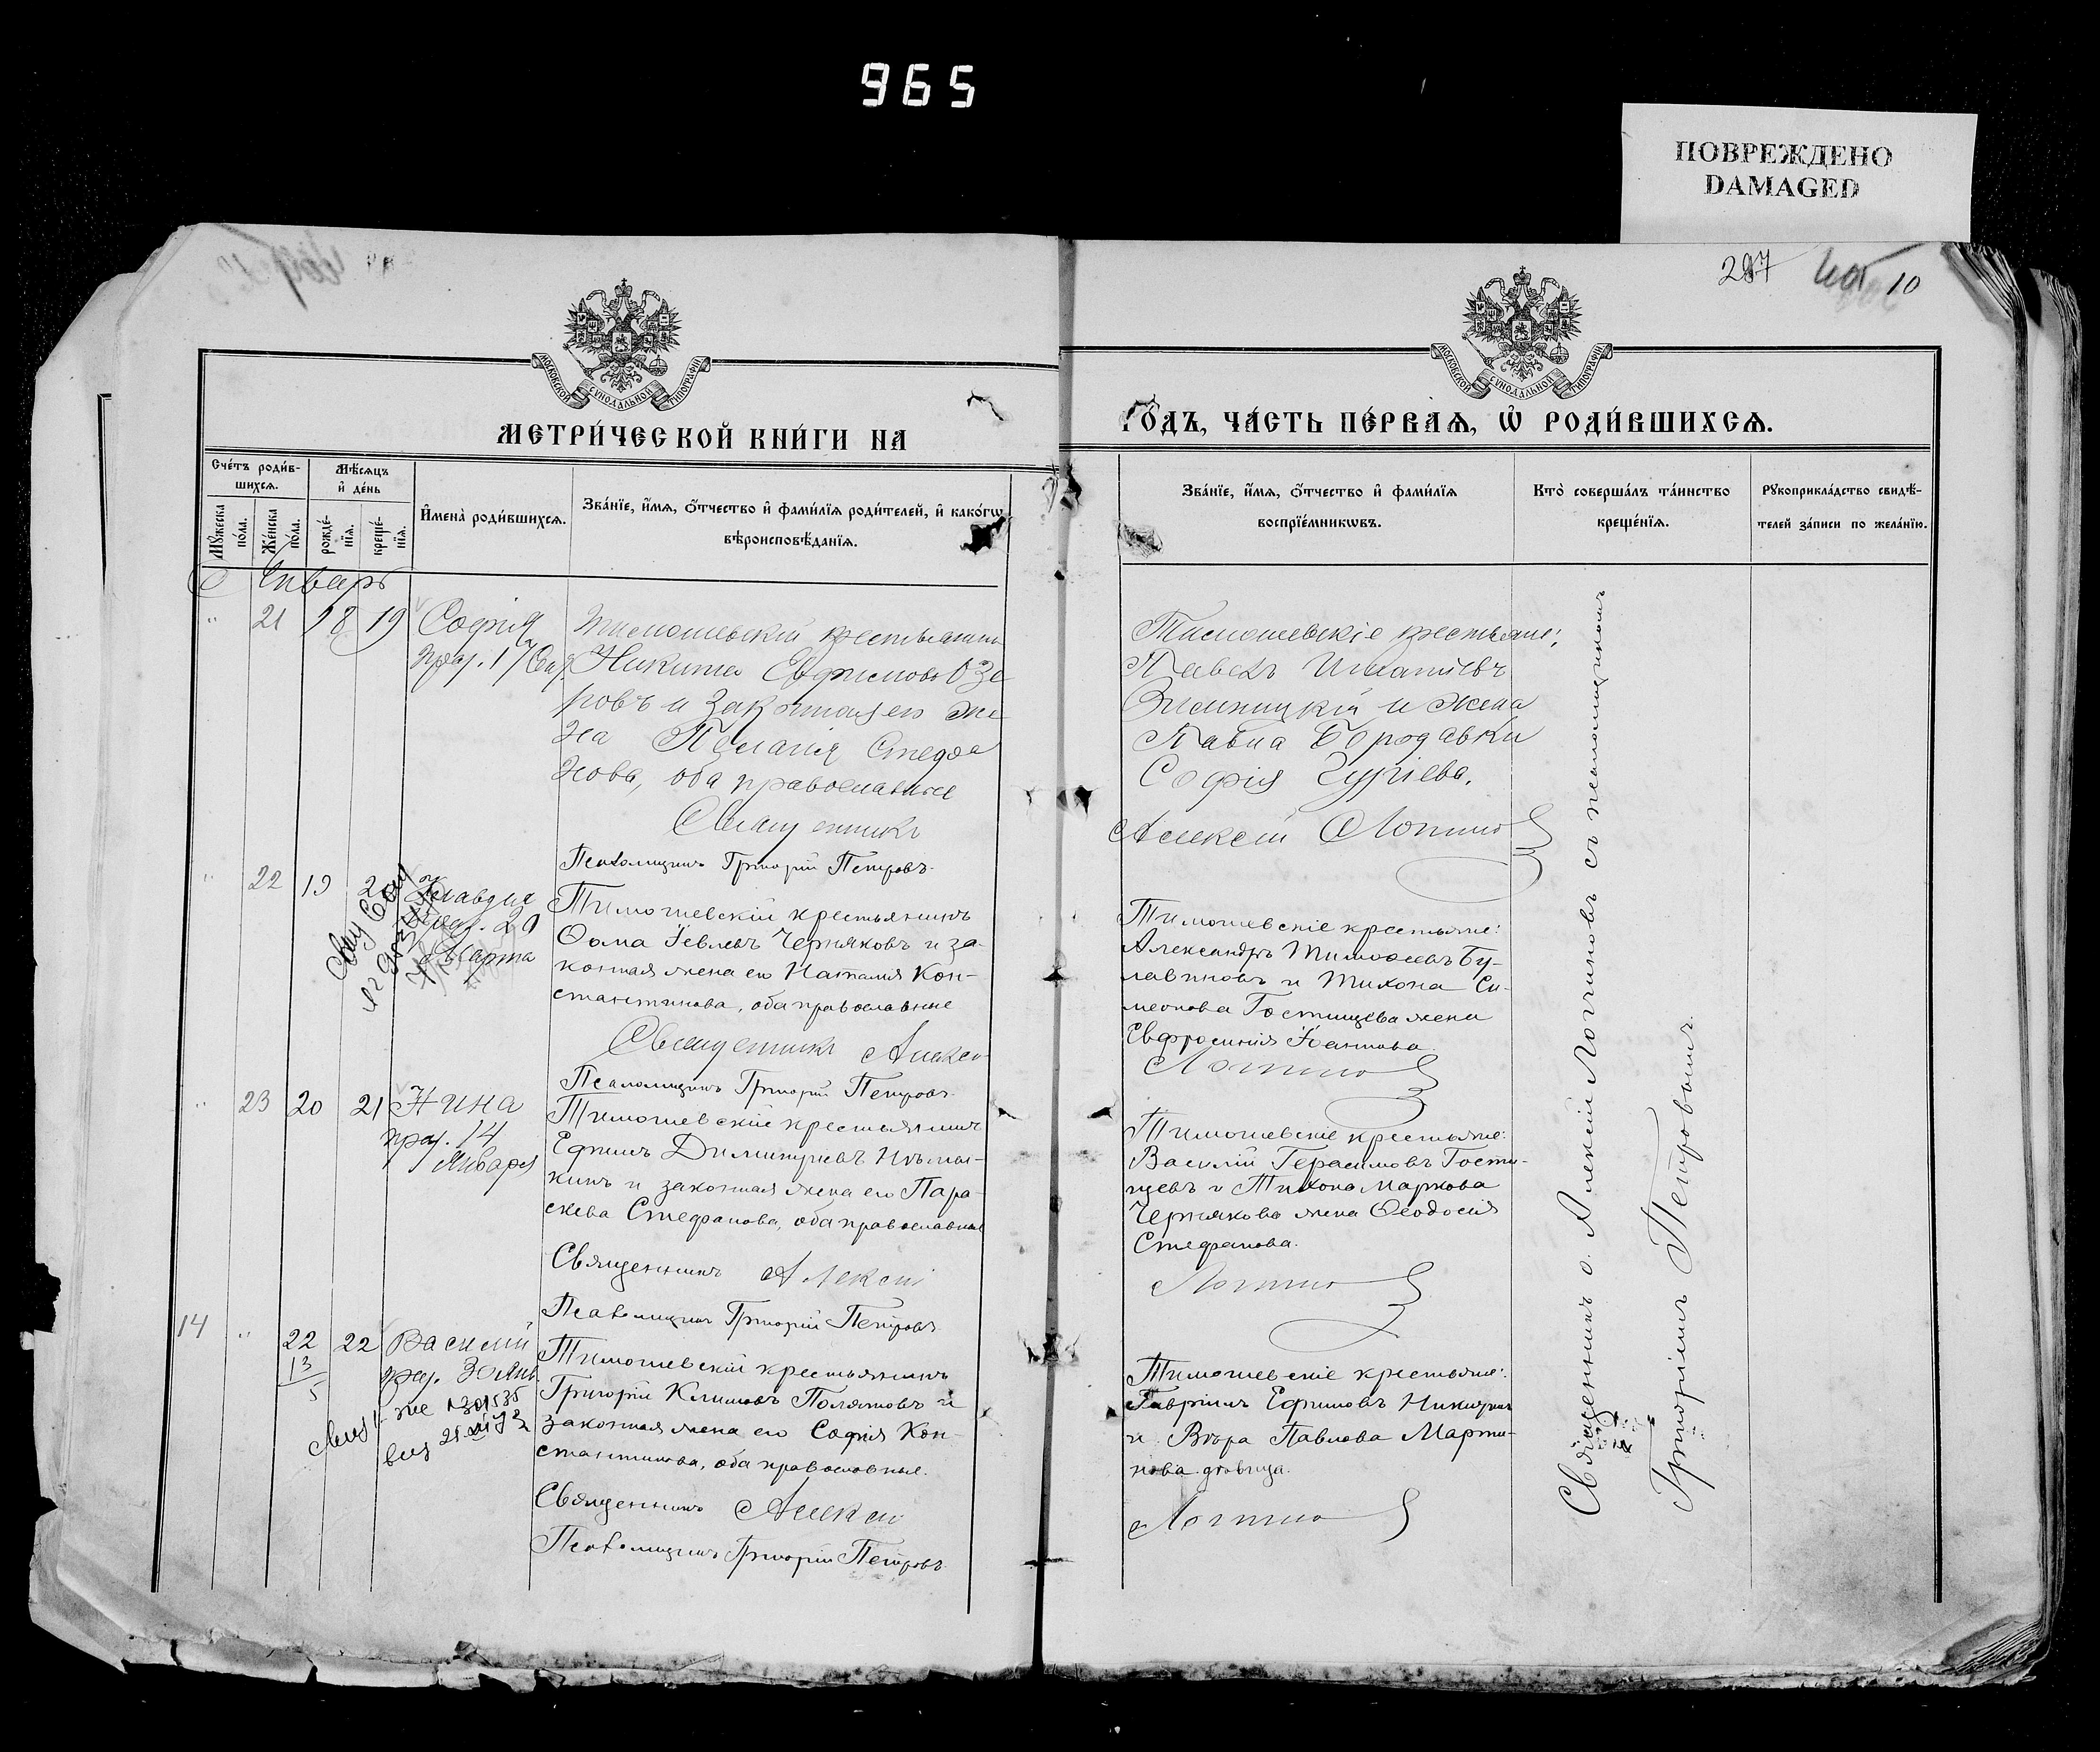 965
ПОВРЕЖДЕНО
DAMAGED
10
МОСКОВСКОЙ СѴНОДАЛЬНОЙ ТИПОГРАФІИ
МОСКОВСКОЙ СѴНОДАЛЬНОЙ ТИПОГРАФІИ
МЕТРИ́ЧЕСКОЙ КНИ́ГИ НА
ГО́ДЪ, ЧА́СТЬ ПЕ́РВАѦ, Ѡ҆ РОДИ́ВШИХСѦ.
Сче́тъ роди́в-
шихсѧ.
Мꙋ́жеска
по́ла.
Же́нска
по́ла.
Мѣ́сѧцъ
и҆ де́нь
рожде́-
нїѧ.
креще́-
нїѧ.
И҆мена̀ роди́вшихсѧ.
Зва́нїе, и҆́мѧ, ѻ҆́тчество и҆ фами́лїѧ роди́телей, и҆ како́гѡ
вѣроисповѣ́данїѧ.
Зва́нїе, и҆́мѧ, ѻ҆́тчество и҆ фами́лїѧ
воспрїе́мникѡвъ.
Кто̀ соверша́лъ та́инство
креще́нїѧ.
Рꙋкоприкла́дство свидѣ́-
телей за́писи по жела́нїю.
Январь
" 21 18 19 Софія
праз. 17 Сен.
Тимошевскій крестьянинъ
Никита Евфимовъ Озе-
ровъ и законная его же-
на Пелагія Стефа
нова, оба православные
Священникъ
Псаломщикъ Григорій Петровъ.
Тимошевскіе крестьяне:
Павелъ Игнатіевъ
Зимницкій и жена
Павла Бородавки
Софія Гуріева.
Алексій Логинов
" 22 19 20 Клавдія
праз. 20
Марта
Тимошевскій крестьянинъ
Ѳома Іевлевъ Черняковъ и за-
конная жена его Наталия Кон-
стантинова, оба православные
Священникъ Алексій
Псаломщикъ Григорій Петровъ.
Тимошевскіе крестьяне:
Александръ Тимоѳеевъ Бу-
лавиновъ и Тихона Си-
меонова Гостищева жена
Евфросинія Іоаннова.
Логинов
" 23 20 21 Нина
праз. 14
Января
Тимошевскій крестьянинъ
Ефимъ Димитріевъ
кинъ и законная жена его Пара-
скева Стефанова, оба православные
Священникъ Алексій
Псаломщикъ Григорій Петровъ.
Тимошевскіе крестьяне:
Василій Герасимовъ Гости-
щевъ и Тихона Маркова
Чернякова жена Ѳеодосія
Стефанова.
Логинов
14 " 22 22 Василій
праз. 30 Янв.
13
5
Тимошевскій крестьянинъ
Григорій Климовъ Поляковъ и
законная жена его Софія Кон-
стантинова, оба православные.
Священникъ Алексій
Псаломщикъ Григорій Петровъ.
Тимошевскіе крестьяне:
Гавріилъ Ефимовъ
и Вѣра Павлова Марты-
нова девица.
Логинов
Священникъ о. Алексій Логиновъ съ псаломщикомъ
Григоріемъ Петровымъ.